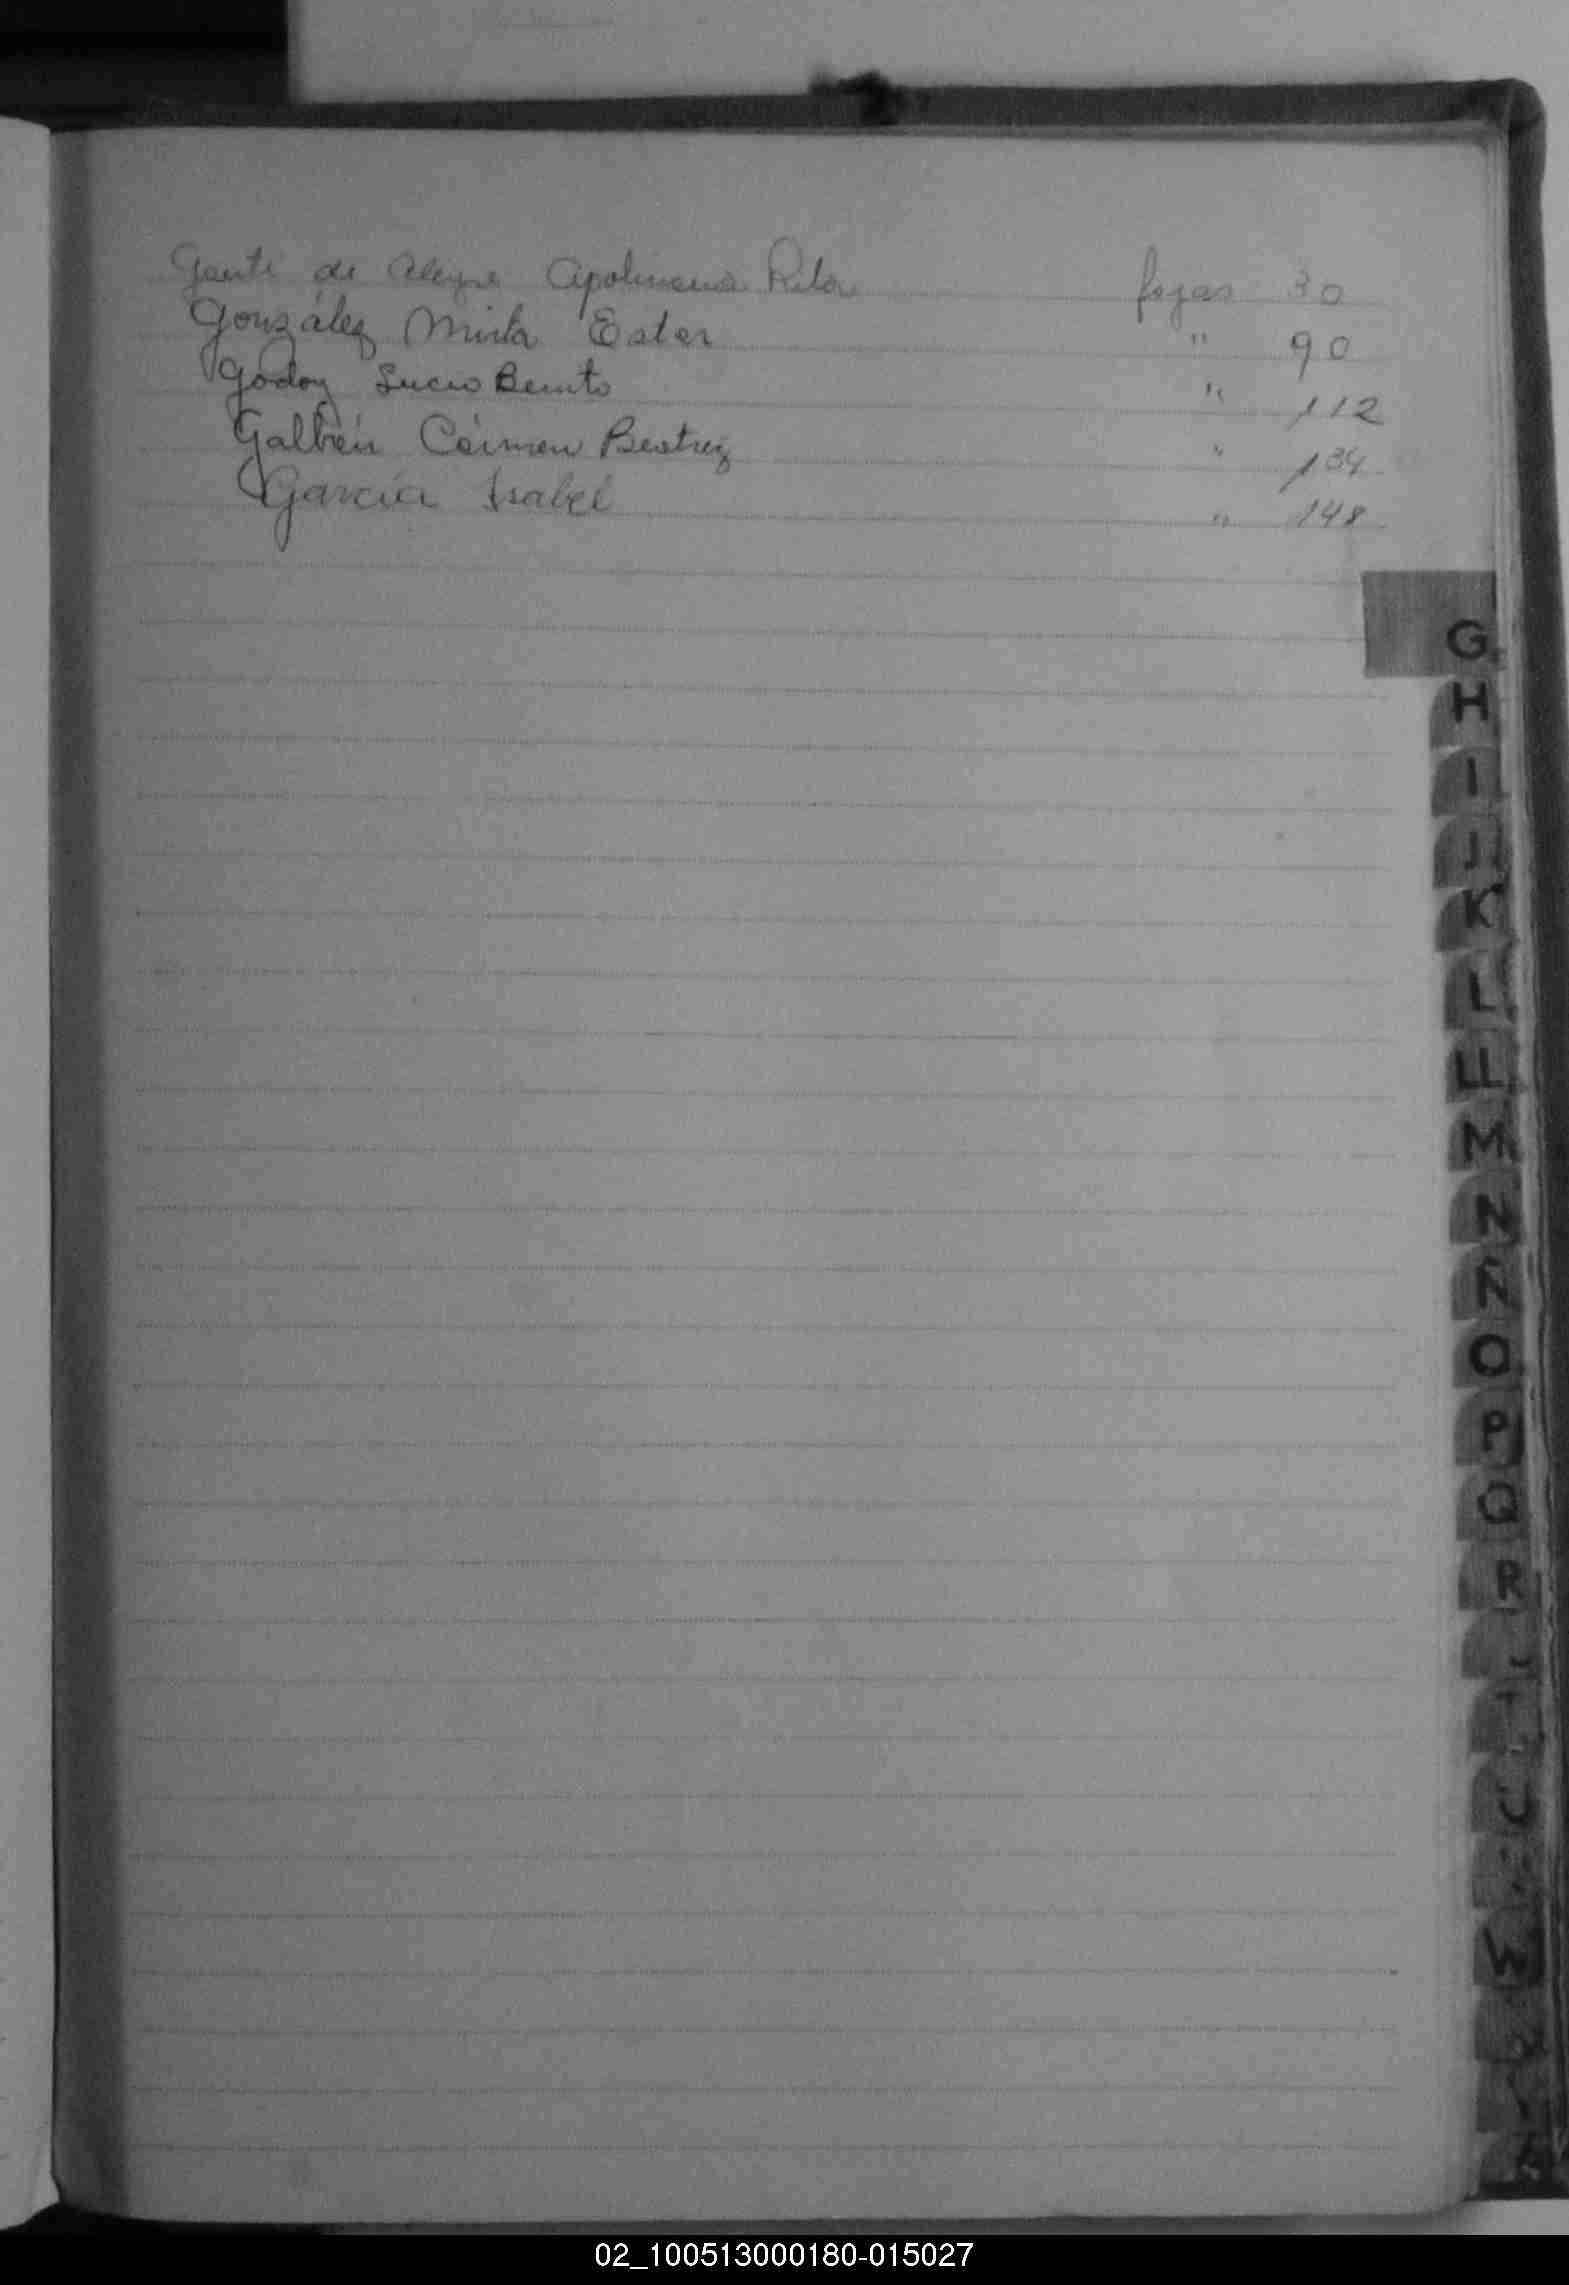 Gauti de Alegre Apolinaria Rita fojas 30
González Mirta Ester " 90
Godoy Lucio Benito " 112
Galbán Cármen Beatriz " 134
García Isabel " 148
G
H
I
J
K
L
LL
M
N
Ñ
O
P
Q
R
T
U
W
02_100513000180-015027